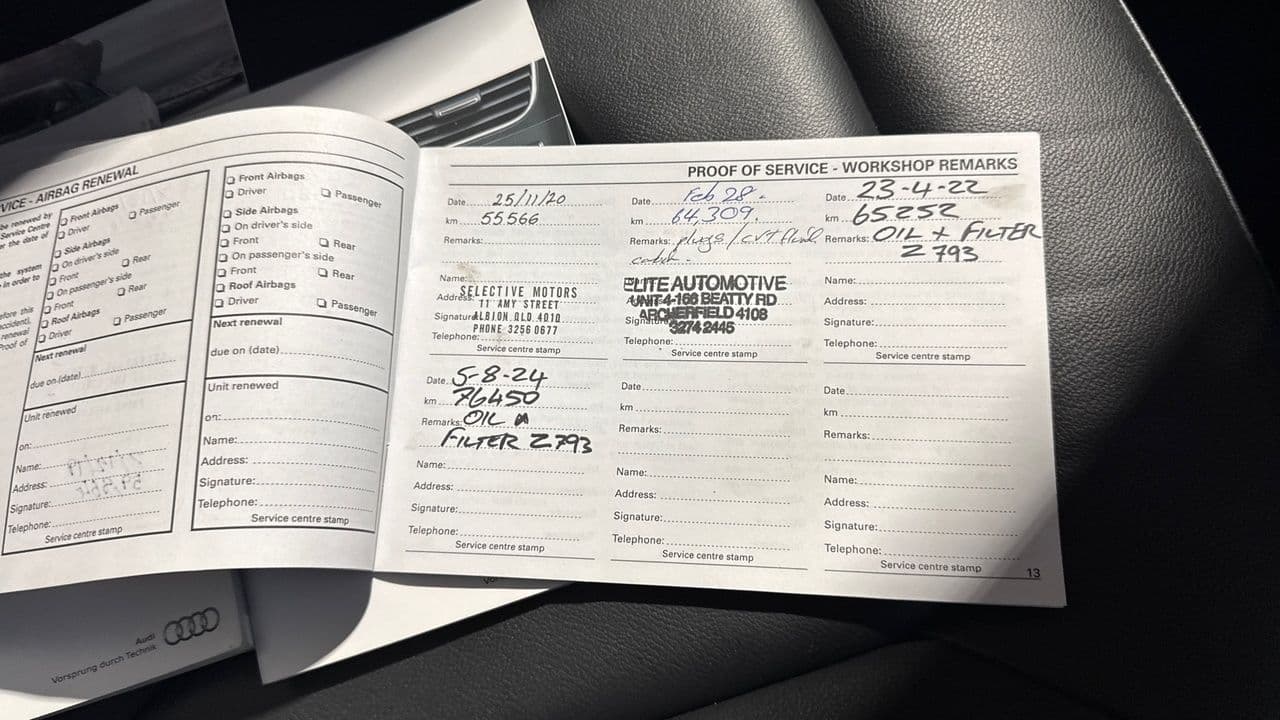 VICE - AIRBAG RENEWAL
be renewed by
Service Centre
r the date of
the system
in order to
efore this
accident),
renewal
Proof of
Front Airbags
Driver
Passenger
Side Airbags
On driver's side
Front
Rear
On passenger's side
Front
Rear
Roof Airbags
Driver
Passenger
Next renewal
due on (date)
Unit renewed
on:
Name:
Address:
Signature:
Telephone:
Service centre stamp
Front Airbags
Driver
Passenger
Side Airbags
On driver's side
Front
Rear
On passenger's side
Front
Rear
Roof Airbags
Driver
Passenger
Next renewal
due on (date)
Unit renewed
on:
Name:
Address:
Signature:
Telephone:
Service centre stamp
PROOF OF SERVICE - WORKSHOP REMARKS
Date 25/11/20
km 55566
Remarks:
Name:
SELECTIVE MOTORS
Address:
11 AMY STREET
Signature:
ALBION QLD 4010
PHONE 3256 0677
Telephone:
Service centre stamp
Date Feb 28.
km 64,309.
Remarks: plugs/cvt fluid
ELITE AUTOMOTIVE
UNIT 4-166 BEATTY RD
ARCHERFIELD 4108
Signature
3274 2445
Telephone:
Service centre stamp
Date 23-4-22
km 65252
Remarks: OIL + FILTER
Z 793
Name:
Address:
Signature:
Telephone:
Service centre stamp
Date 5-8-24
km 76450
Remarks: OIL
FILTER Z793
Name:
Address:
Signature:
Telephone:
Service centre stamp
Date
km
Remarks:
Name:
Address:
Signature:
Telephone:
Service centre stamp
Date
km
Remarks:
Name:
Address:
Signature:
Telephone:
Service centre stamp
13
Audi
Vorsprung durch Technik